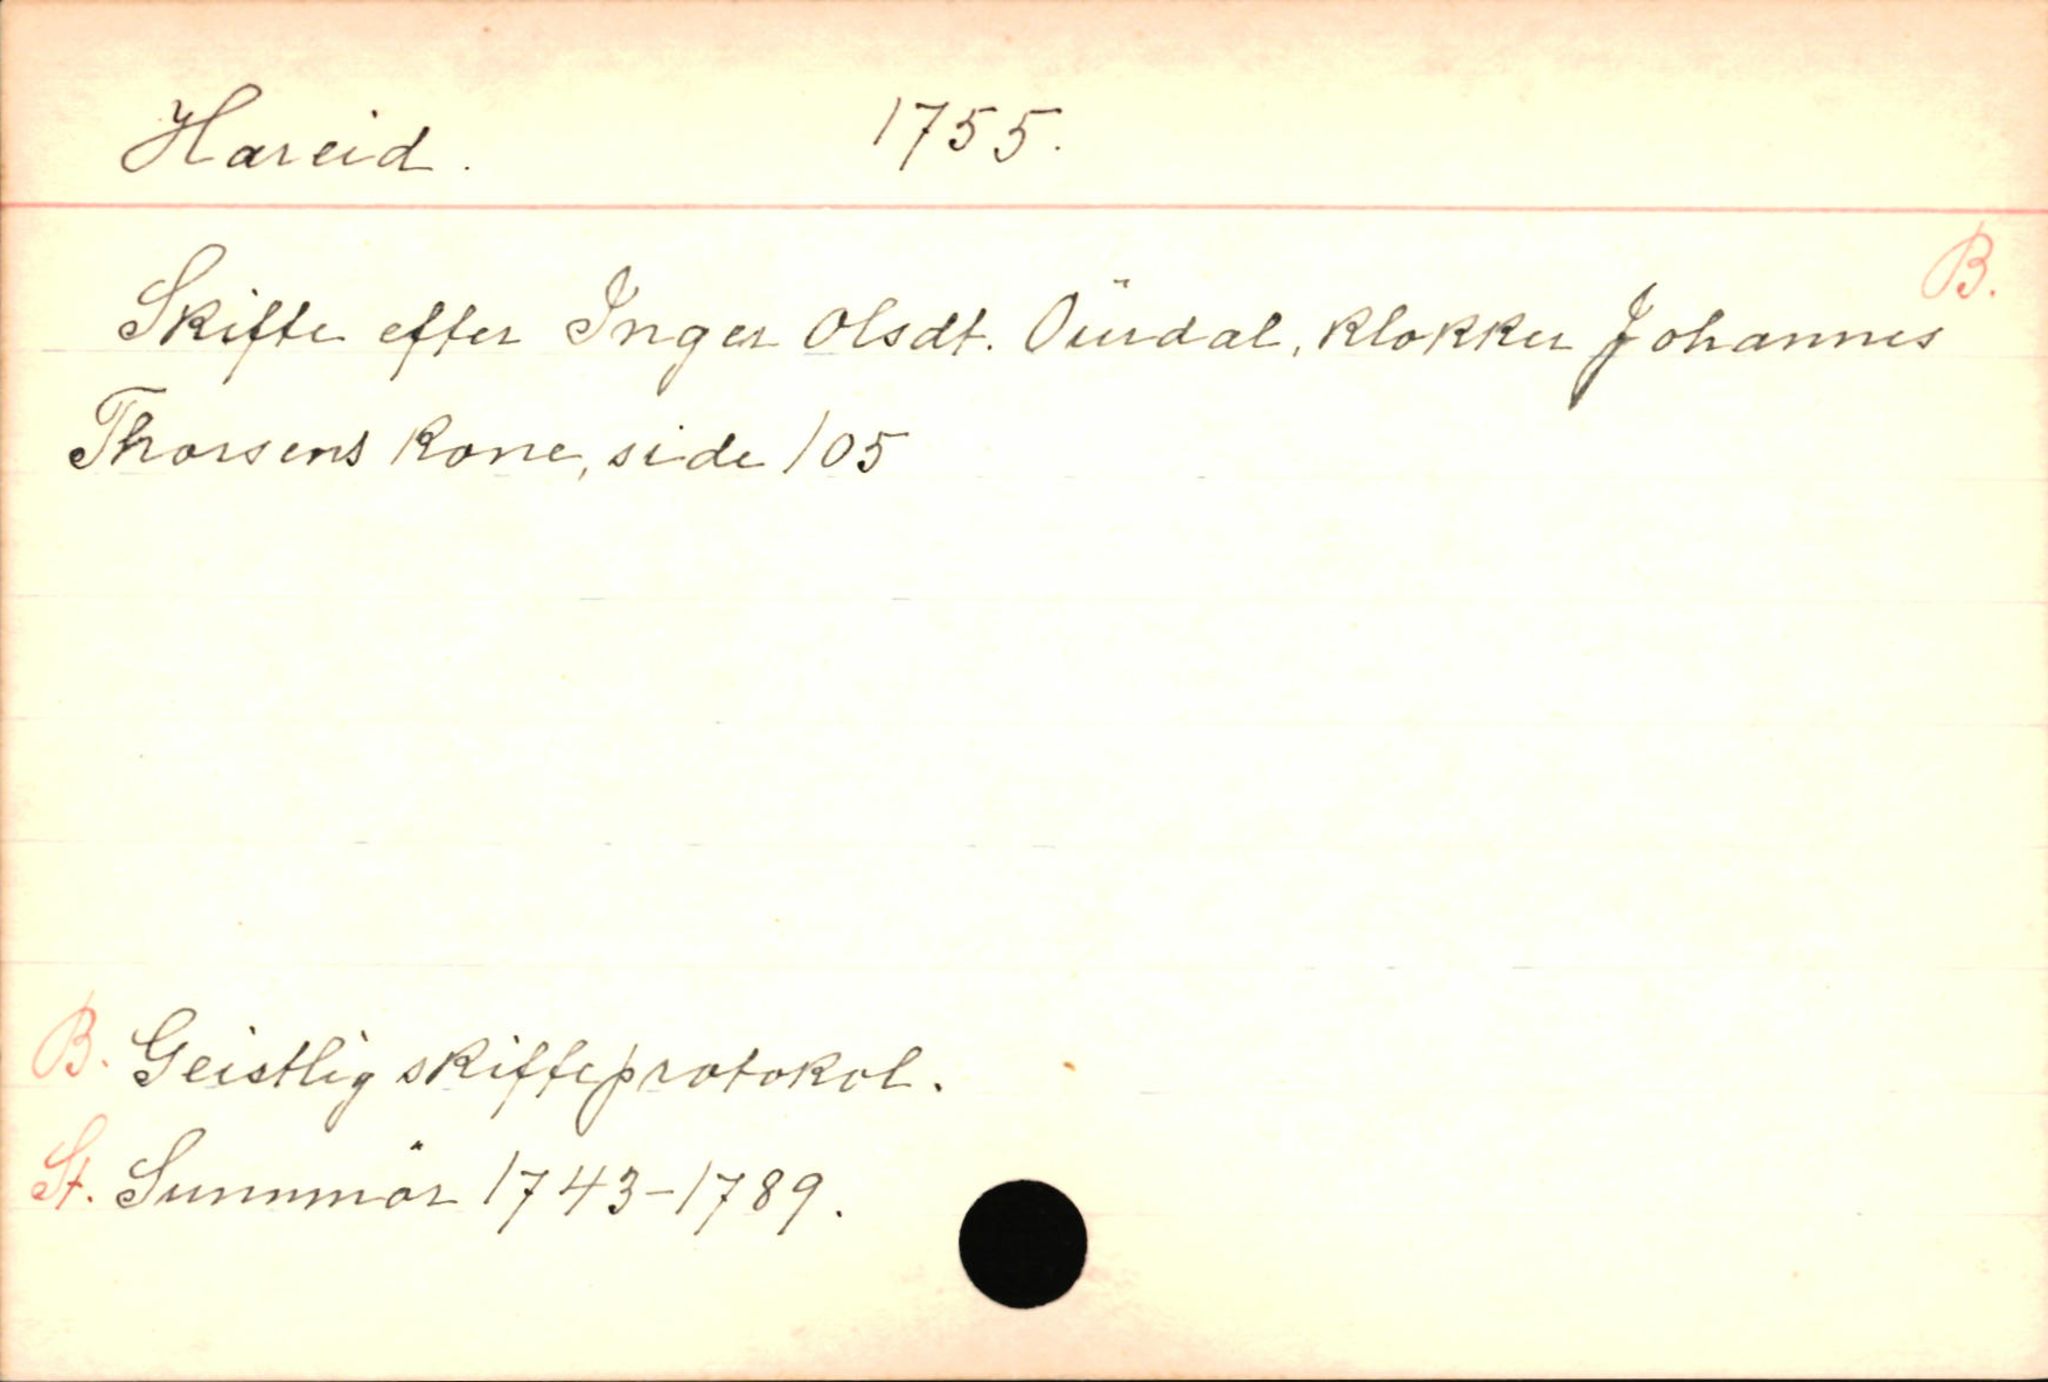 Hareid. 1755.
B.
Skifte efter Inger Olsdt. Öurdal, klokker Johannes
Thorsens kone, side 105
B. Geistlig skifteprotokol.
St. Sunnmör 1743-1789.